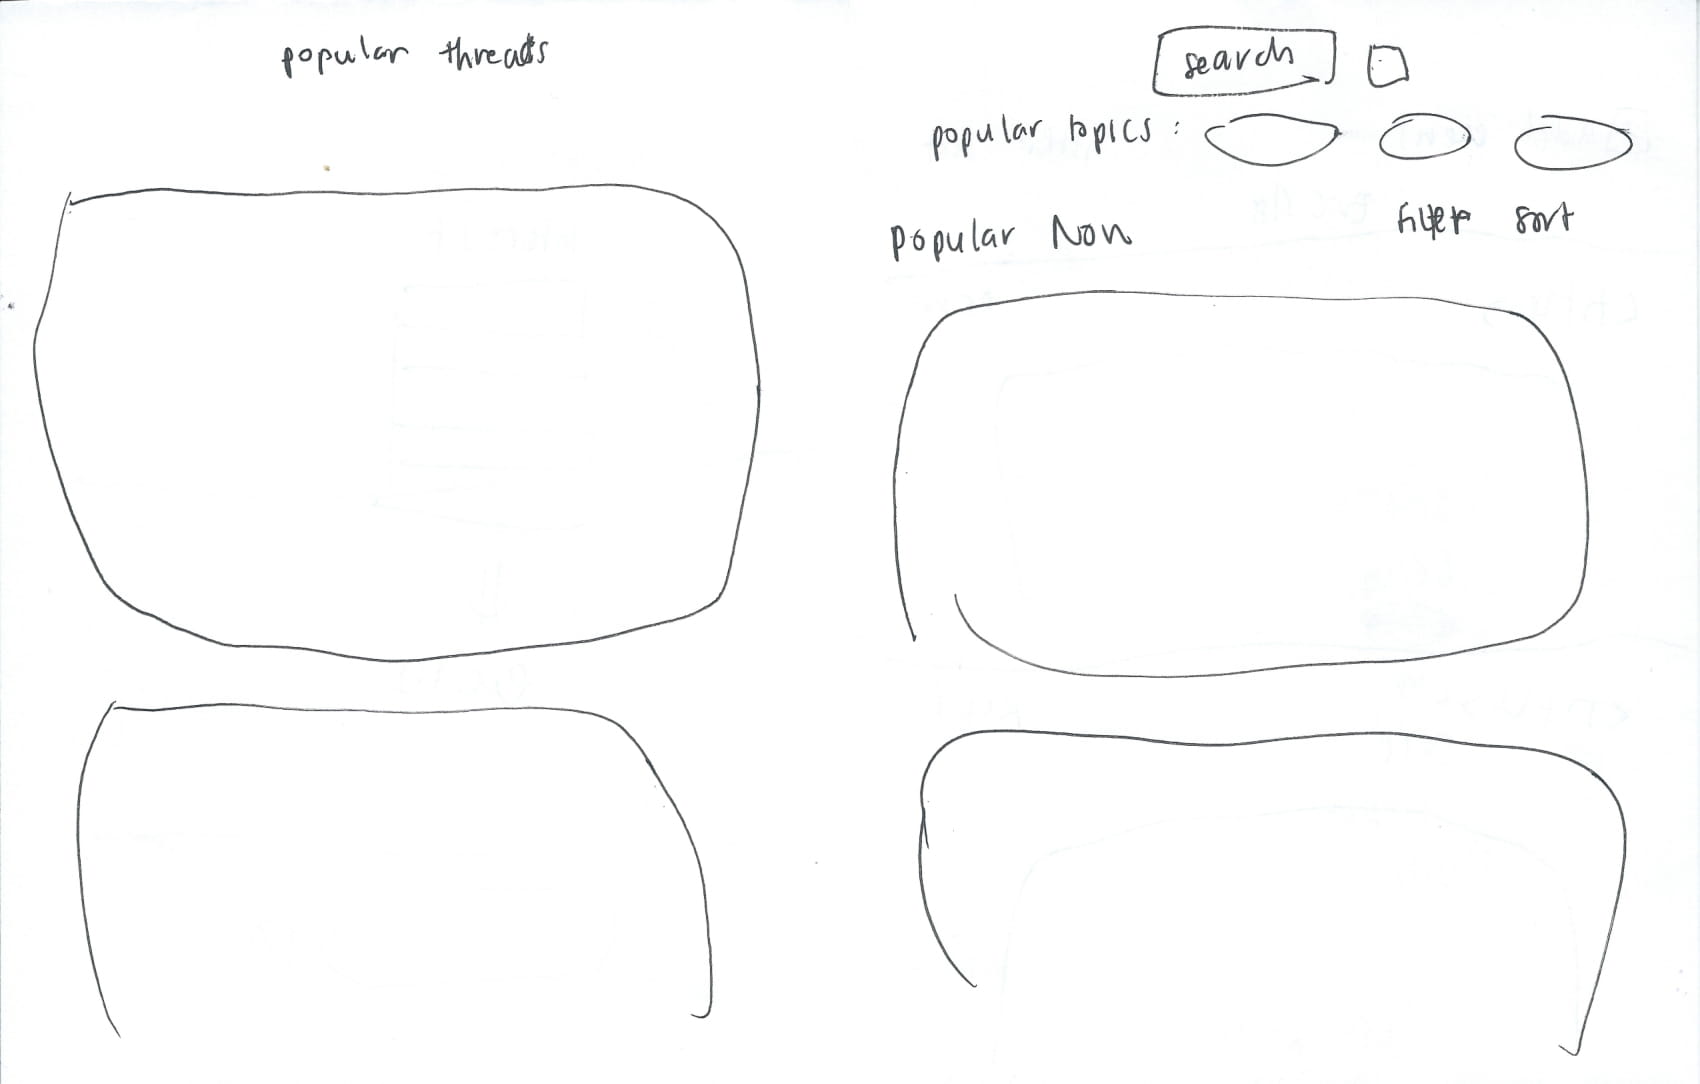 popular threads
search
popular topics :
Popular Now
filter sort